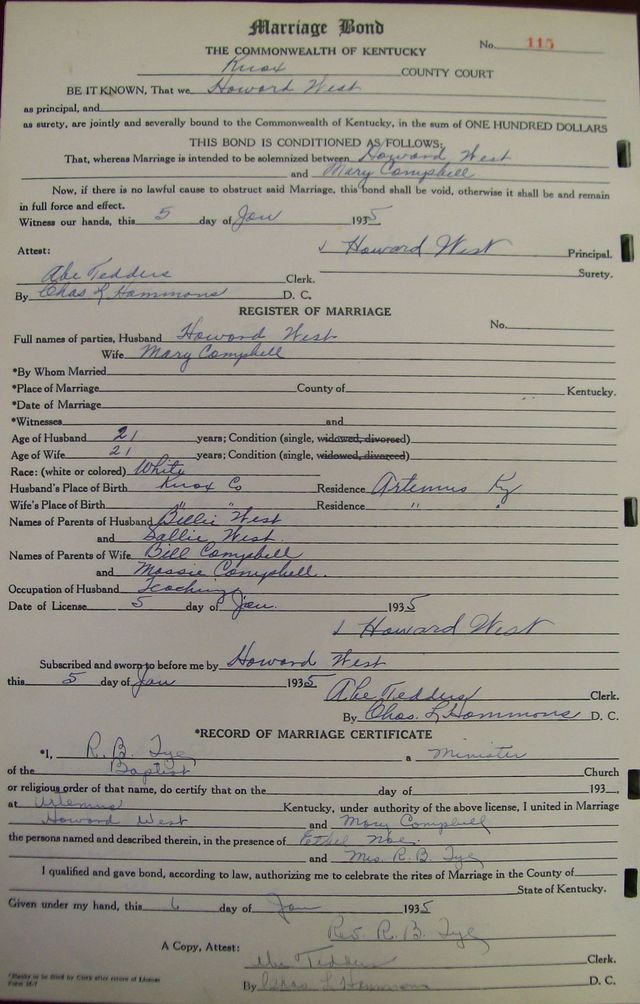 Marriage Bond
No. 115
THE COMMONWEALTH OF KENTUCKY
Knox COUNTY COURT
BE IT KNOWN, That we Howard West
as principal, and
as surety, are jointly and severally bound to the Commonwealth of Kentucky, in the sum of ONE HUNDRED DOLLARS
THIS BOND IS CONDITIONED AS FOLLOWS:
That, whereas Marriage is intended to be solemnized between Howard West
and Mary Campbell
Now, if there is no lawful cause to obstruct said Marriage, this bond shall be void, otherwise it shall be and remain
in full force and effect.
Witness our hands, this 5 day of Jan 1935
Attest: Howard West Principal.
Surety.
Abe Tedders Clerk.
By Chas L Hammons D. C.
REGISTER OF MARRIAGE
No.
Full names of parties, Husband Howard West
Wife Mary Campbell
*By Whom Married
*Place of Marriage County of Kentucky.
*Date of Marriage
*Witnesses and
Age of Husband 21 years; Condition (single, widowed, divorced)
Age of Wife 21 years; Condition (single, widowed, divorced)
Race: (white or colored) White
Husband's Place of Birth Knox Co Residence Artemus Ky
Wife's Place of Birth " " Residence " "
Names of Parents of Husband Billie West
and Sallie West.
Names of Parents of Wife Bill Campbell
and Mossie Campbell.
Occupation of Husband Teaching
Date of License 5 day of Jan. 1935
Howard West
Subscribed and sworn to before me by Howard West
this 5 day of Jan 1935
Abe Tedders Clerk.
By Chas. L Hammons D. C.
*RECORD OF MARRIAGE CERTIFICATE
*I, R. B. Tye a Minister
of the Baptist Church
or religious order of that name, do certify that on the day of 193 ,
at Artemus Kentucky, under authority of the above license, I united in Marriage
Howard West and Mary Campbell
the persons named and described therein, in the presence of Ethel Noe.
and Mrs. R. B. Tye
I qualified and gave bond, according to law, authorizing me to celebrate the rites of Marriage in the County of
State of Kentucky.
Given under my hand, this 6 day of Jan 1935
Rev. R. B. Tye
A Copy, Attest: Abe Tedders Clerk.
By Chas L Hammons D. C.
*Blanks to be filled by Clerk after return of License